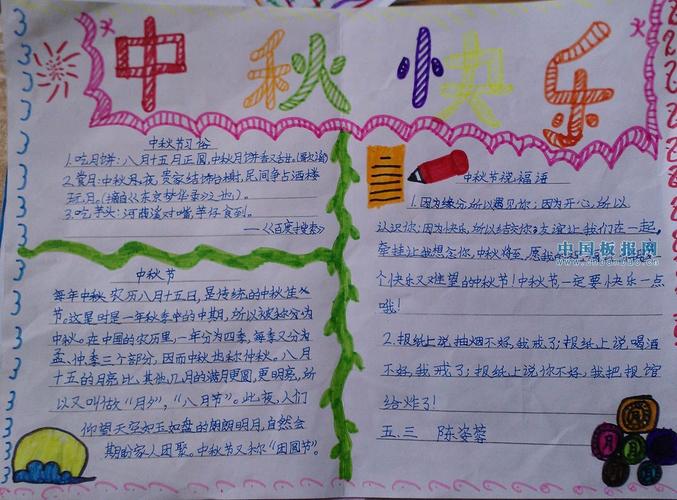 中秋快乐
中秋节习俗
1.吃月饼:八月十五月正圆,中秋月饼香又甜.(歌谣)
2.赏月:中秋月夜,贵家结饰台榭,民间争占酒楼
玩月。(摘自《东京梦华录》)
3.吃芋头:河
芋仔食到。
——《百度搜索》
中秋节
每年中秋农历八月十五日,是传统的中秋佳
节。这是时是一年秋季中的中期,所以被称你为
中秋。在中国的农历里,一年分为四季,每季又分为
孟、仲、季三个部分,因而中秋也称仲秋。八月
十五的月亮比其他几月的满月更圆,更明亮,所
以又叫做“月夕”,“八月节”。此夜,人们
仰望天空如玉如盘的朗朗明月,自然会
期盼家人团聚。中秋节又称“团圆节”。
中秋节祝福语
1.因为缘分,所以遇见你;因为开心,所以
认识你;因为快乐,所以结交你;友谊让我们在一起,
牵挂让我想念你,中秋将至,愿我
个快乐又难望的中秋节!中秋节一定要快乐一点
哦!
2.报纸上说抽烟不好,我戒了;报纸上说喝酒
不好,我戒了;报纸上说你不好,我把报馆
给炸了!
五.三 陈姿蓉
中国板报网
月